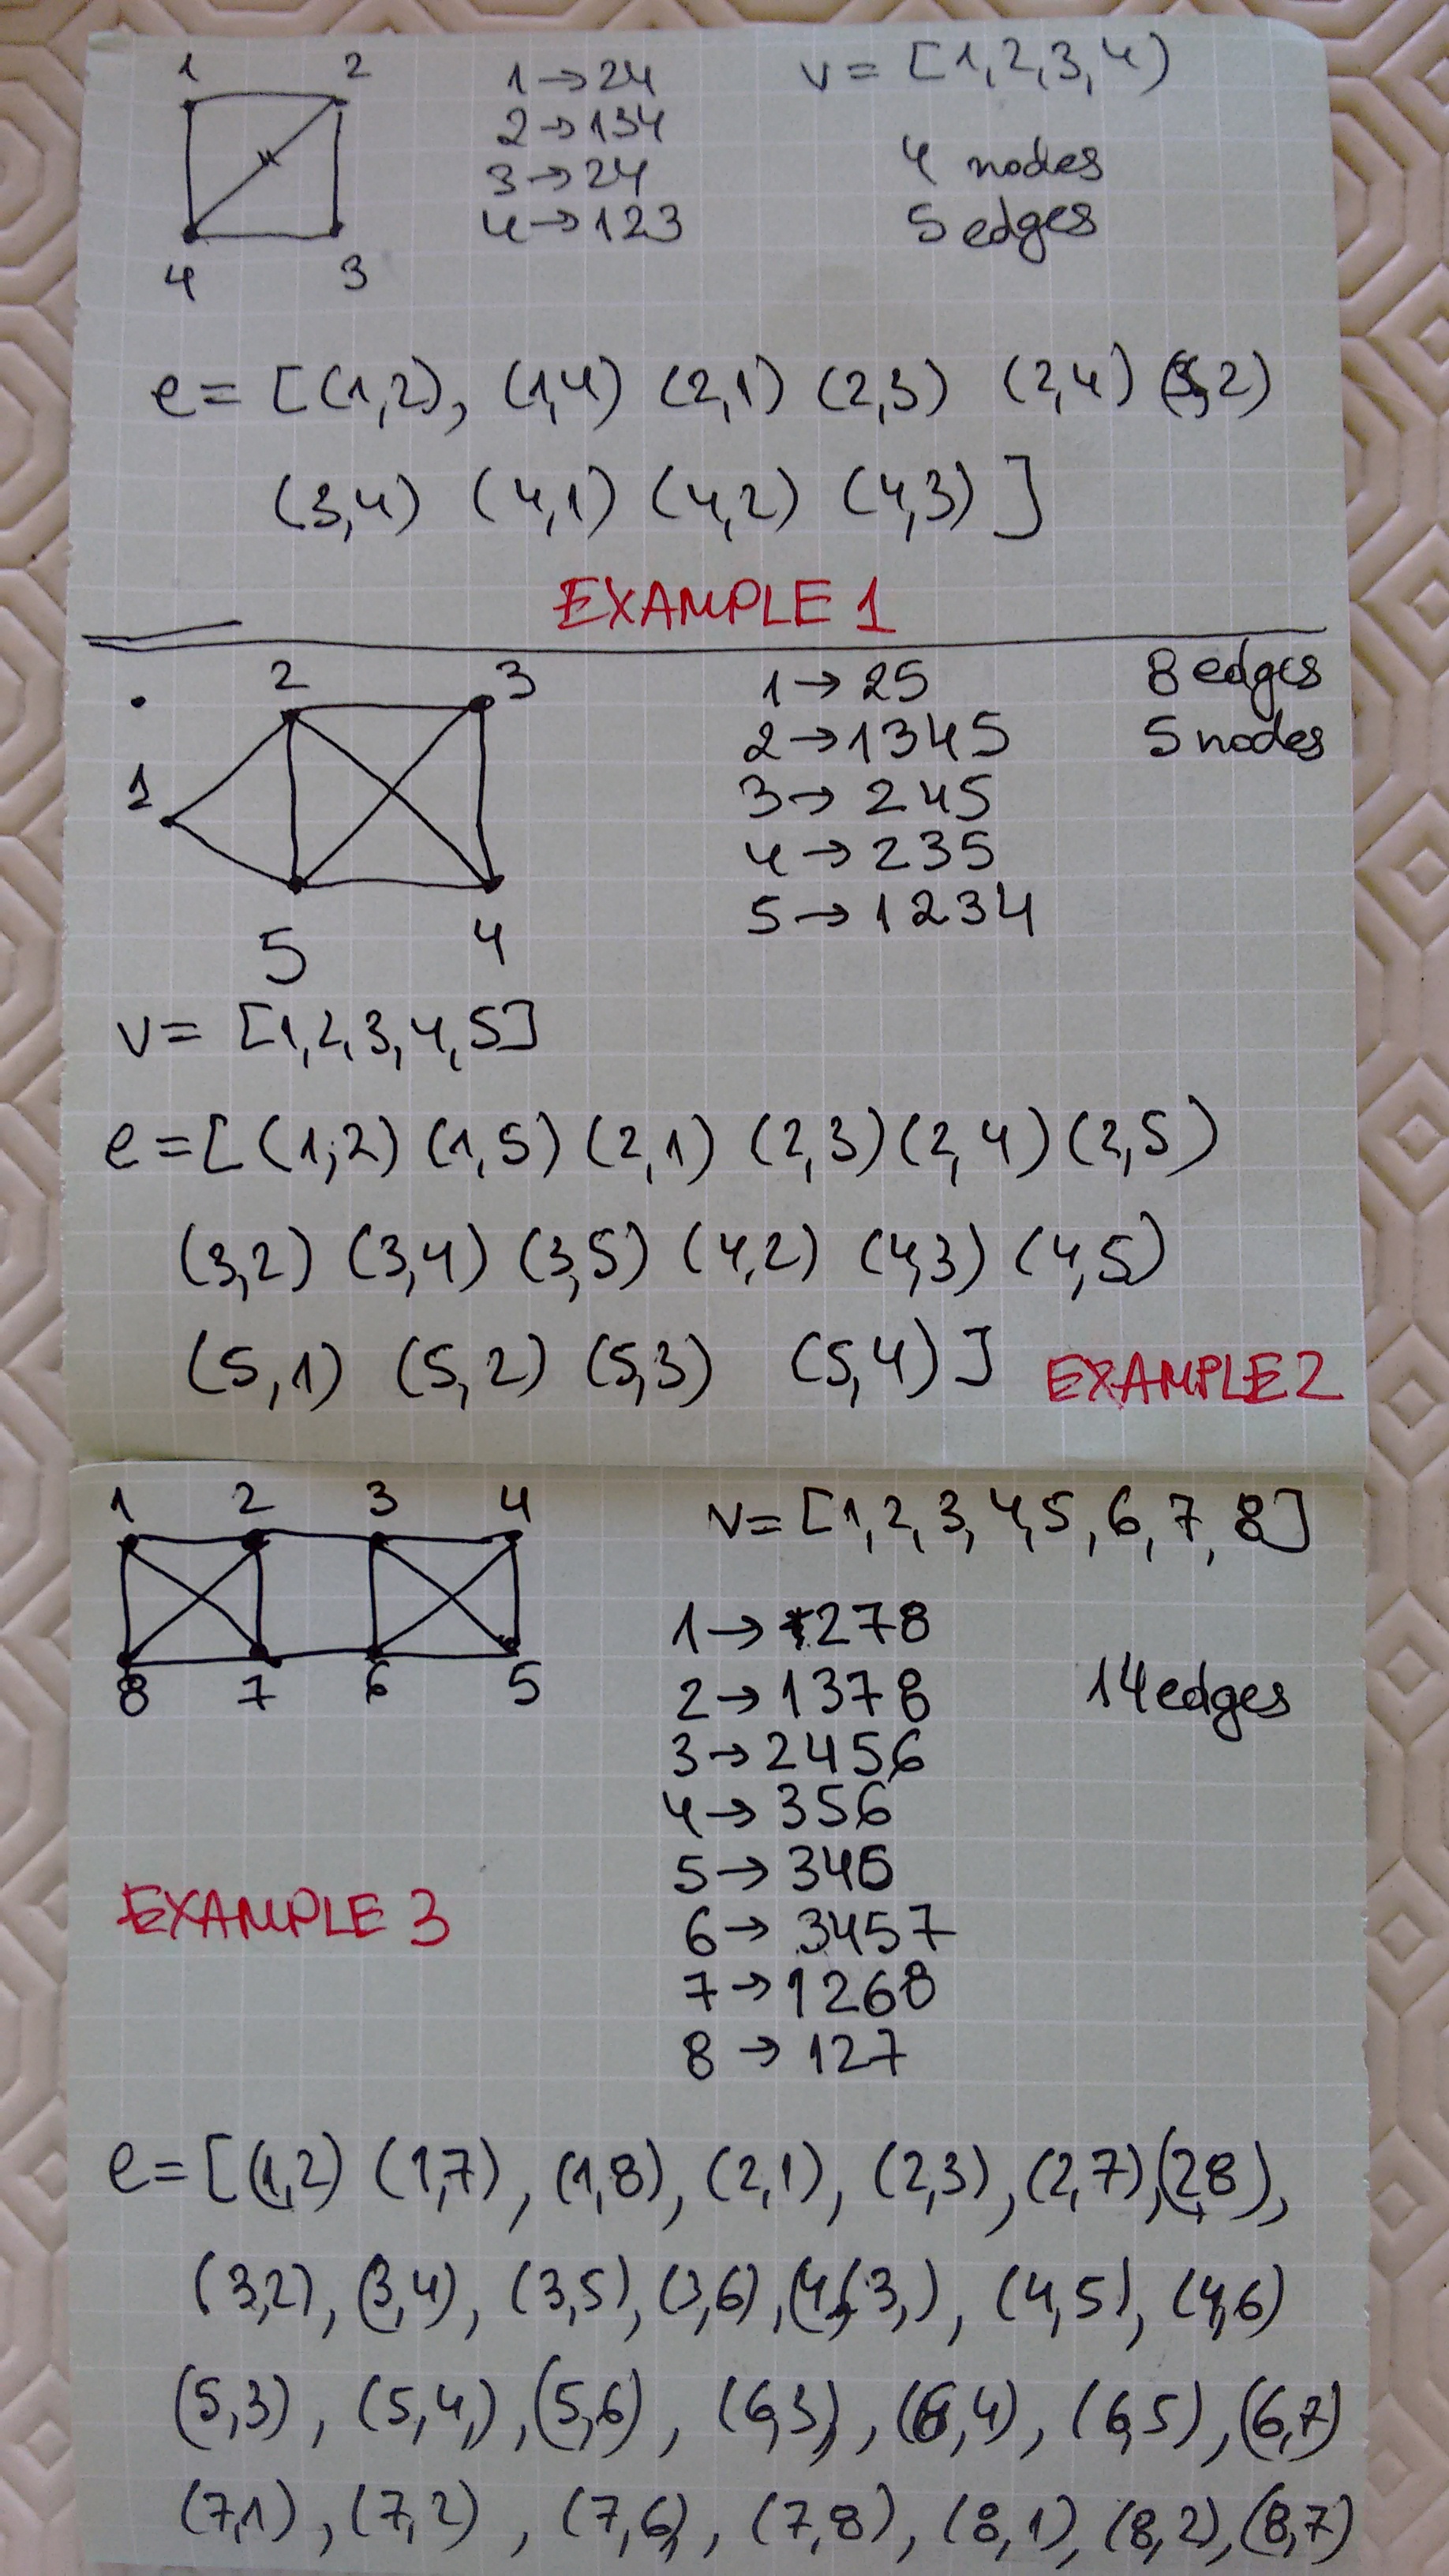 1 2
4 3
1→24
2→134
3→24
4→123
v= [1,2,3,4)
4 nodes
5 edges
e= [(1,2), (1,4) (2,1) (2,3) (2,4) (3,2)
(3,4) (4,1) (4,2) (4,3) ]
EXAMPLE 1
2 3
1
5 4
1→25
2→1345
3→245
4→235
5→1234
8 edges
5 nodes
v= [1,2,3,4,5]
e=[ (1,2) (1,5) (2,1) (2,3) (2,4) (2,5)
(3,2) (3,4) (3,5) (4,2) (4,3) (4,5)
(5,1) (5,2) (5,3) (5,4) ]
EXAMPLE 2
1 2 3 4
8 7 6 5
v= [1,2,3,4,5,6,7,8]
1→278
2→1378
3→2456
4→356
5→346
6→3457
7→1268
8→127
14 edges
EXAMPLE 3
e= [(1,2) (1,7), (1,8), (2,1), (2,3), (2,7),(2,8),
(3,2), (3,4), (3,5), (3,6), (4,(3,), (4,5), (4,6)
(5,3), (5,4,), (5,6), (6,3), (6,4), (6,5), (6,7)
(7,1), (7,2), (7,6), (7,8), (8,1), (8,2), (8,7)